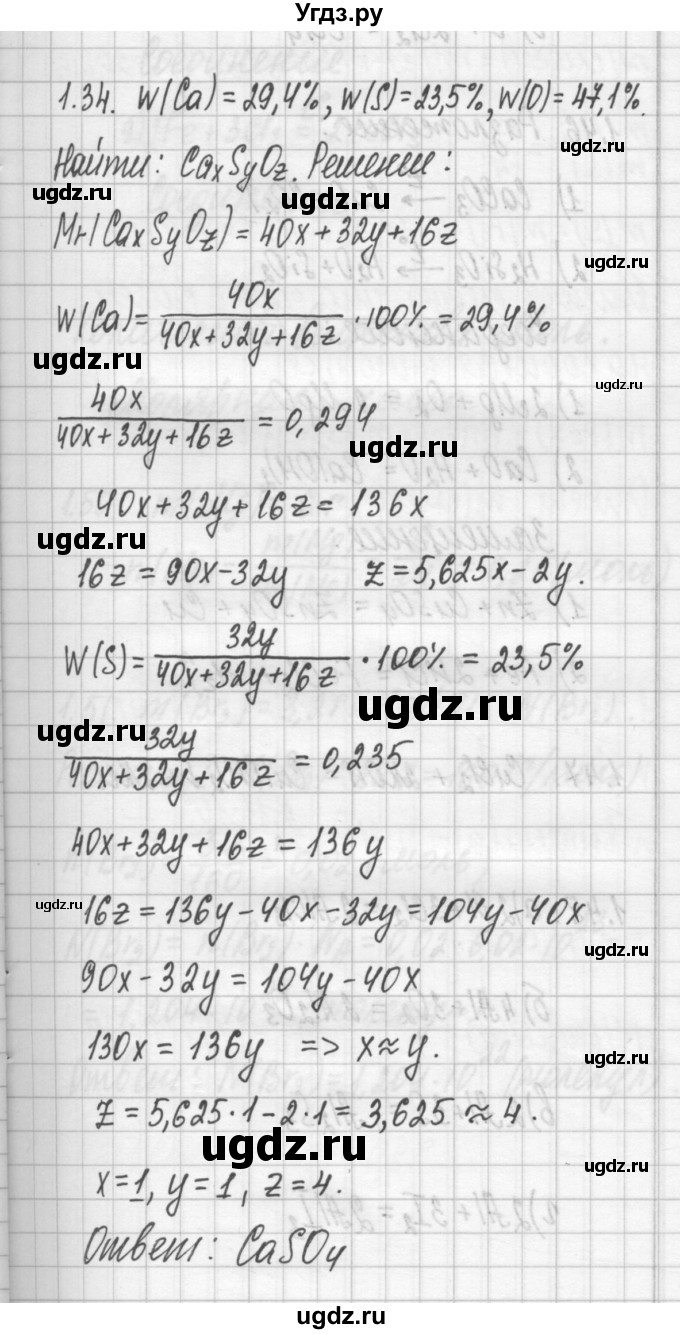 Угдз.ру
1.34. W(Ca) = 29,4%, W(S) = 23,5%, W(O) = 47,1%.
ugdz.ru
Найти: CaxSyOz. Решение:
ugdz.ru
ugdz.ru
Mr(CaxSyOz) = 40x + 32y + 16z
ugdz.ru
W(Ca) = 40x / 40x + 32y + 16z · 100% = 29,4%
ugdz.ru
ugdz.ru
40x / 40x + 32y + 16z = 0,294
ugdz.ru
40x + 32y + 16z = 136x
ugdz.ru
ugdz.ru
16z = 90x - 32y z = 5,625x - 2y.
W(S) = 32y / 40x + 32y + 16z · 100% = 23,5%
ugdz.ru
ugdz.ru
32y / 40x + 32y + 16z = 0,235
ugdz.ru
40x + 32y + 16z = 136y
ugdz.ru
ugdz.ru
16z = 136y - 40x - 32y = 104y - 40x
90x - 32y = 104y - 40x
130x = 136y => x ≈ y.
ugdz.ru
z = 5,625·1 - 2·1 = 3,625 ≈ 4.
ugdz.ru
ugdz.ru
x = 1, y = 1, z = 4.
Ответ: CaSO4
ugdz.ru